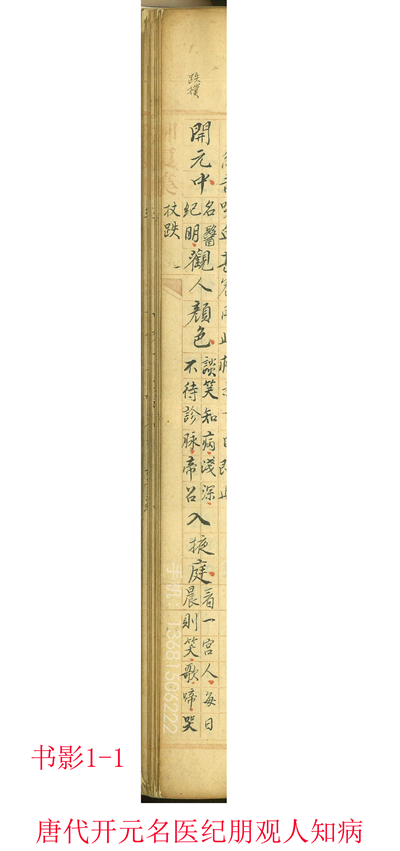 跌撲
開元中
名醫
紀明
觀人顏色
談笑知病淺深
不待診脉帝召
入掖庭
看一宮人每日
晨則笑歌啼哭
杖跌
手机：13681506222
书影1-1
唐代开元名医纪朋观人知病